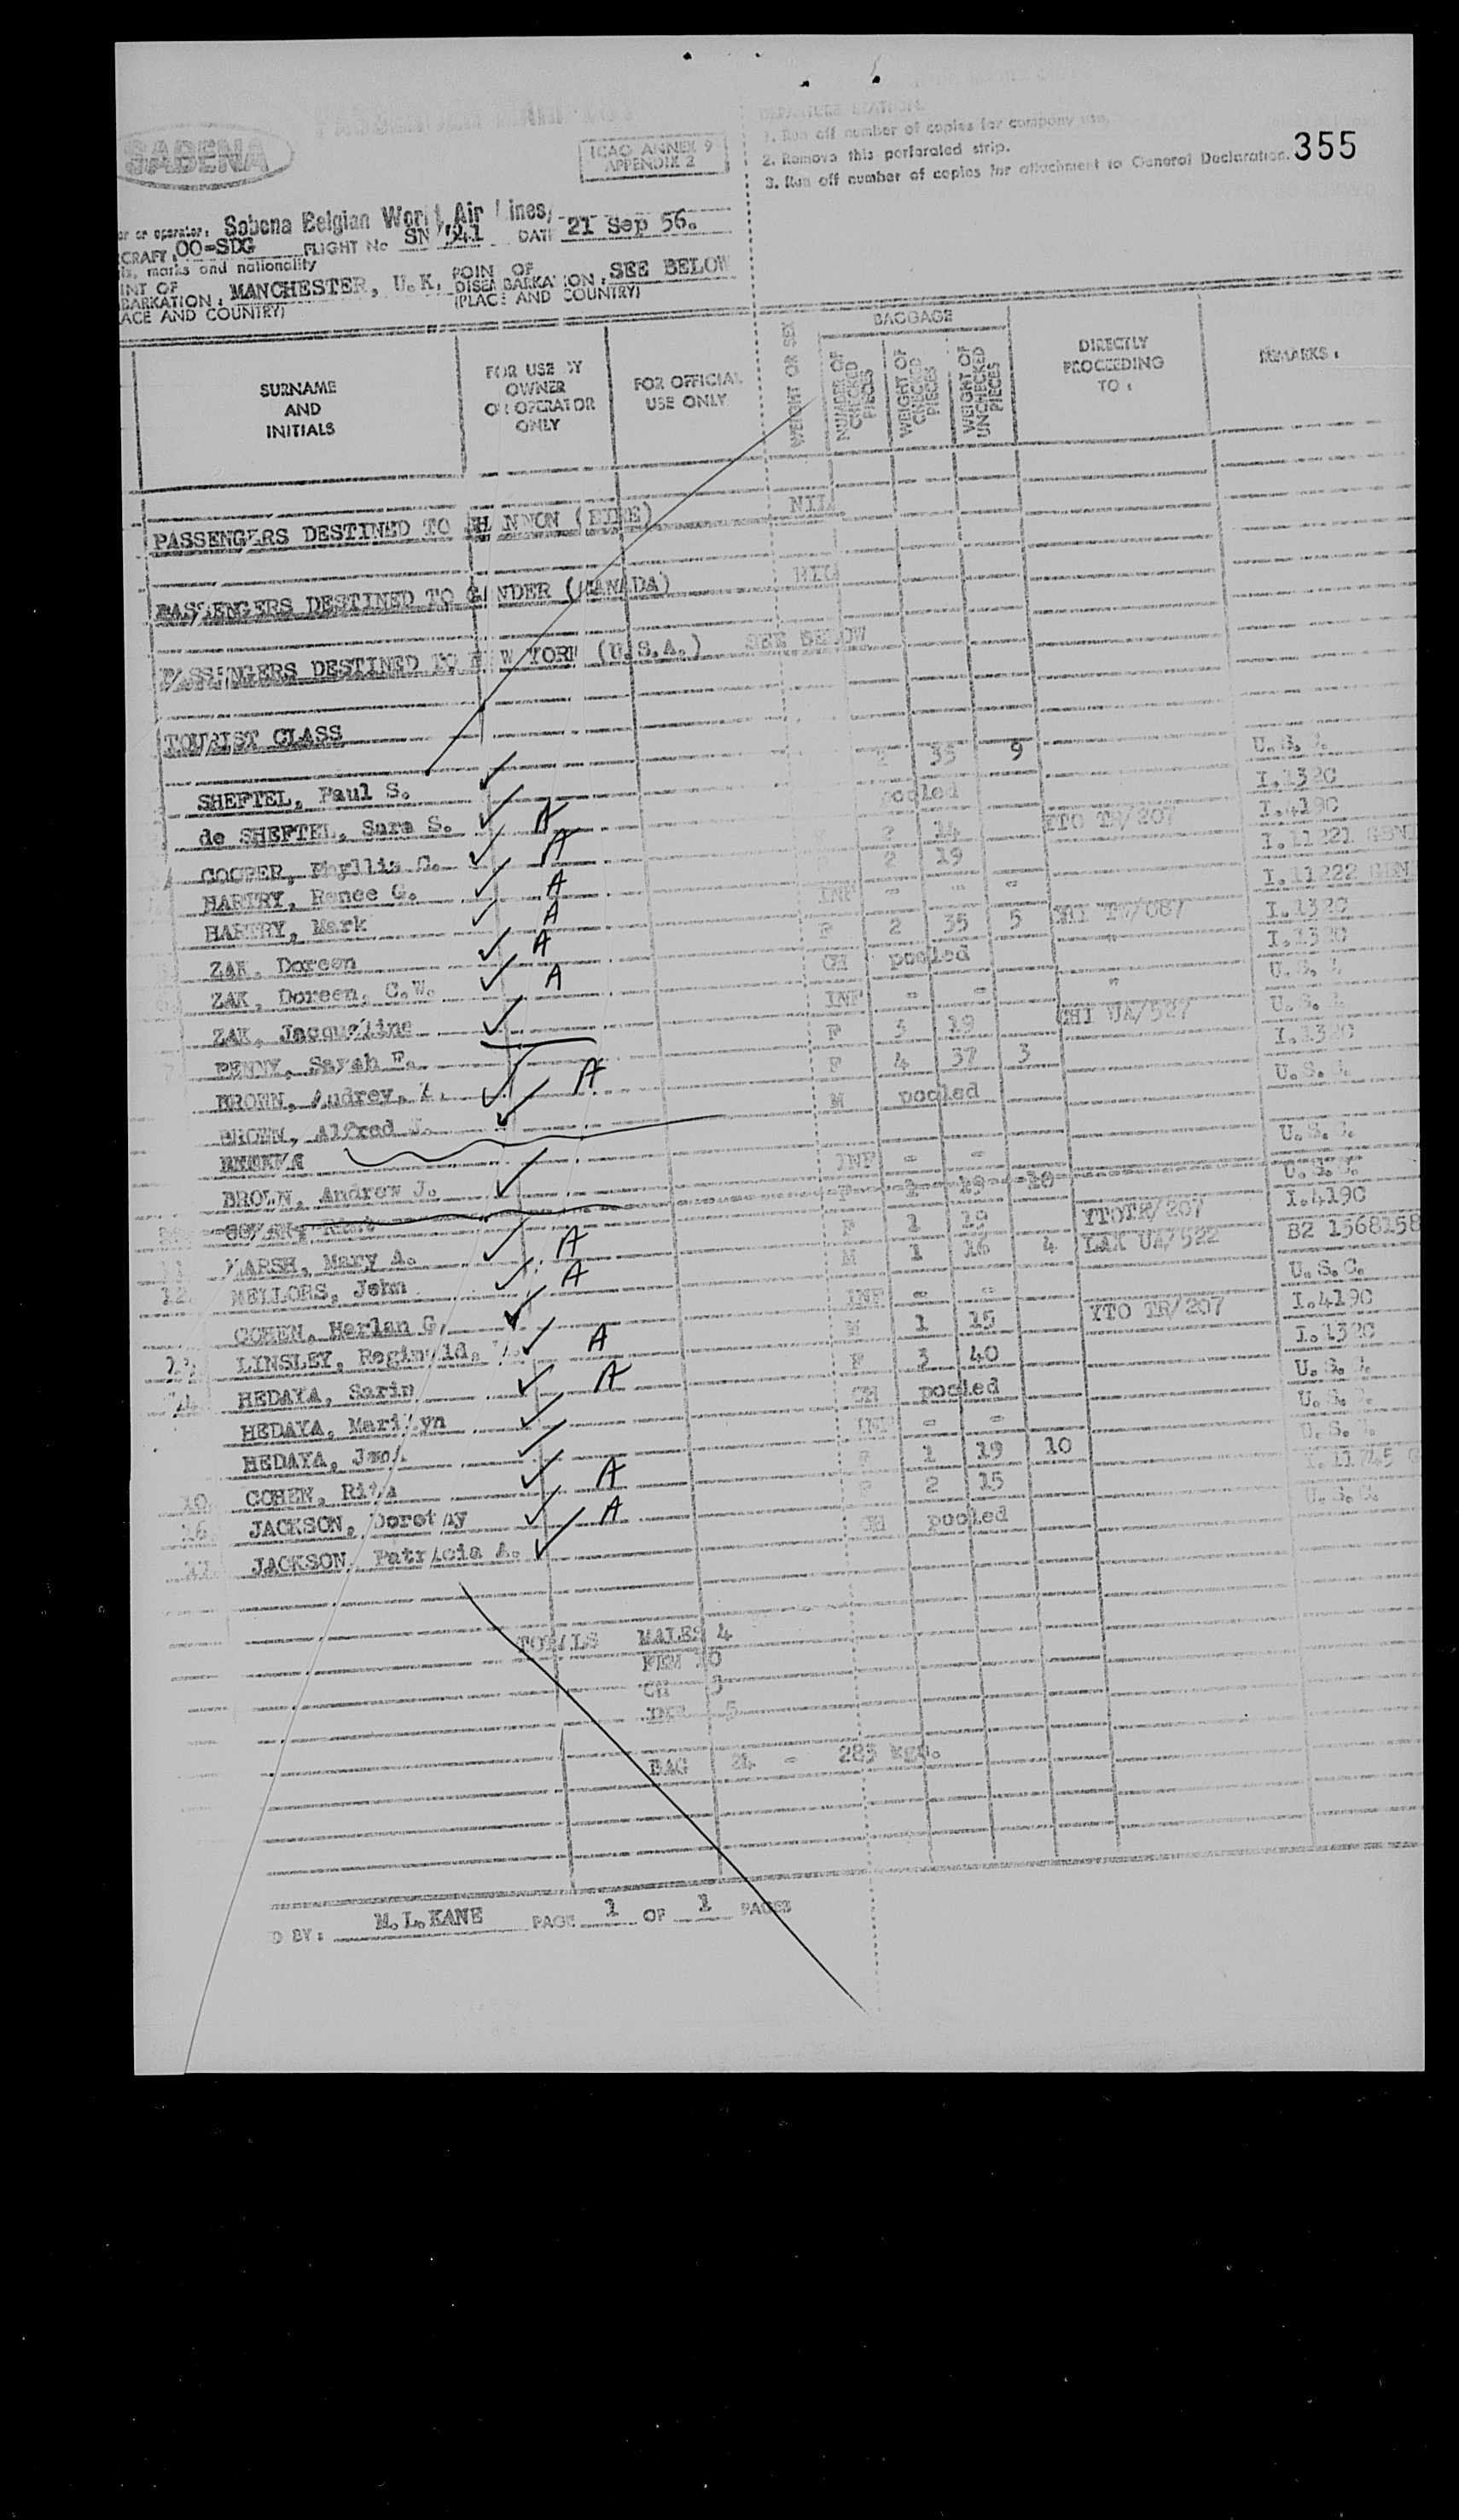 SABENA
ICAO ANNEX 9
APPENDIX 2
1. Run off number of copies for company use.
2. Remove this perforated strip.
3. Run off number of copies for attachment to General Declaration.
355
or operator: Sabena Belgian World Air Lines,
CRAFT OO-SDG FLIGHT No SN DATE 21 Sep 56.
marks and nationality
INT OF
BARKATION: MANCHESTER, U.K. POINT OF DISEMBARKATION: SEE BELOW
ACE AND COUNTRY) (PLACE AND COUNTRY)
SURNAME AND INITIALS
FOR USE BY OWNER OR OPERATOR ONLY
FOR OFFICIAL USE ONLY
WEIGHT OR SEX
BAGGAGE
NUMBER OF CHECKED PIECES
WEIGHT OF CHECKED PIECES
WEIGHT OF UNCHECKED PIECES
DIRECTLY PROCEEDING TO:
REMARKS:
PASSENGERS DESTINED TO SHANNON (EIRE) NIL
PASSENGERS DESTINED TO GANDER (CANADA) NIL
PASSENGERS DESTINED TO NEW YORK (U.S.A.) SEE BELOW
TOURIST CLASS
SHEFTEL, Paul S. 35 9 U.S.C.
de SHEFTEL, Sara S. A pooled I.132C
COOPER, Phyllis C. A 2 14 YTO TR/207 I.419C
HARTRY, Renee G. A 2 19 I.11221
HARTRY, Mark A INF - - - I.11222
ZAK, Doreen A F 2 35 5 CHI I.132C
ZAK, Doreen, C.W. A CH pooled " I.132C
ZAK, Jacqueline INF - - " U.S.C.
PENNY, Sarah E. F 3 19 CHI UA/527 U.S.C.
BROWN, Audrey, A F 4 37 3 I.132C
BROWN, Alfred J. M pooled U.S.C.
BROWN, Andrew J. INF - - U.S.C.
F 1 19 10 U.S.C.
11 MARSH, Mary A. A F 1 19 YTO TR/207 I.419C
12. MELLORS, John A M 1 16 4 LAX UA/522 B2 1568158
COHEN, Harlan G. INF - - U.S.C.
13 LINSLEY, Reginald, A M 1 15 YTO TR/207 I.419C
14 HEDAYA, Sarin A F 3 40 I.132C
HEDAYA, Marilyn CH pooled U.S.C.
HEDAYA, INF - - U.S.C.
10. COHEN, Rita A F 1 19 10 U.S.C.
16. JACKSON, Dorothy A F 2 15
JACKSON, Patricia A. CH pooled U.S.C.
TOTALS MALES 4
FEM 10
CH 3
INF 5
BAG 24 - 283 Kgs.
D BY: M.L.KANE PAGE 1 OF 1 PAGES